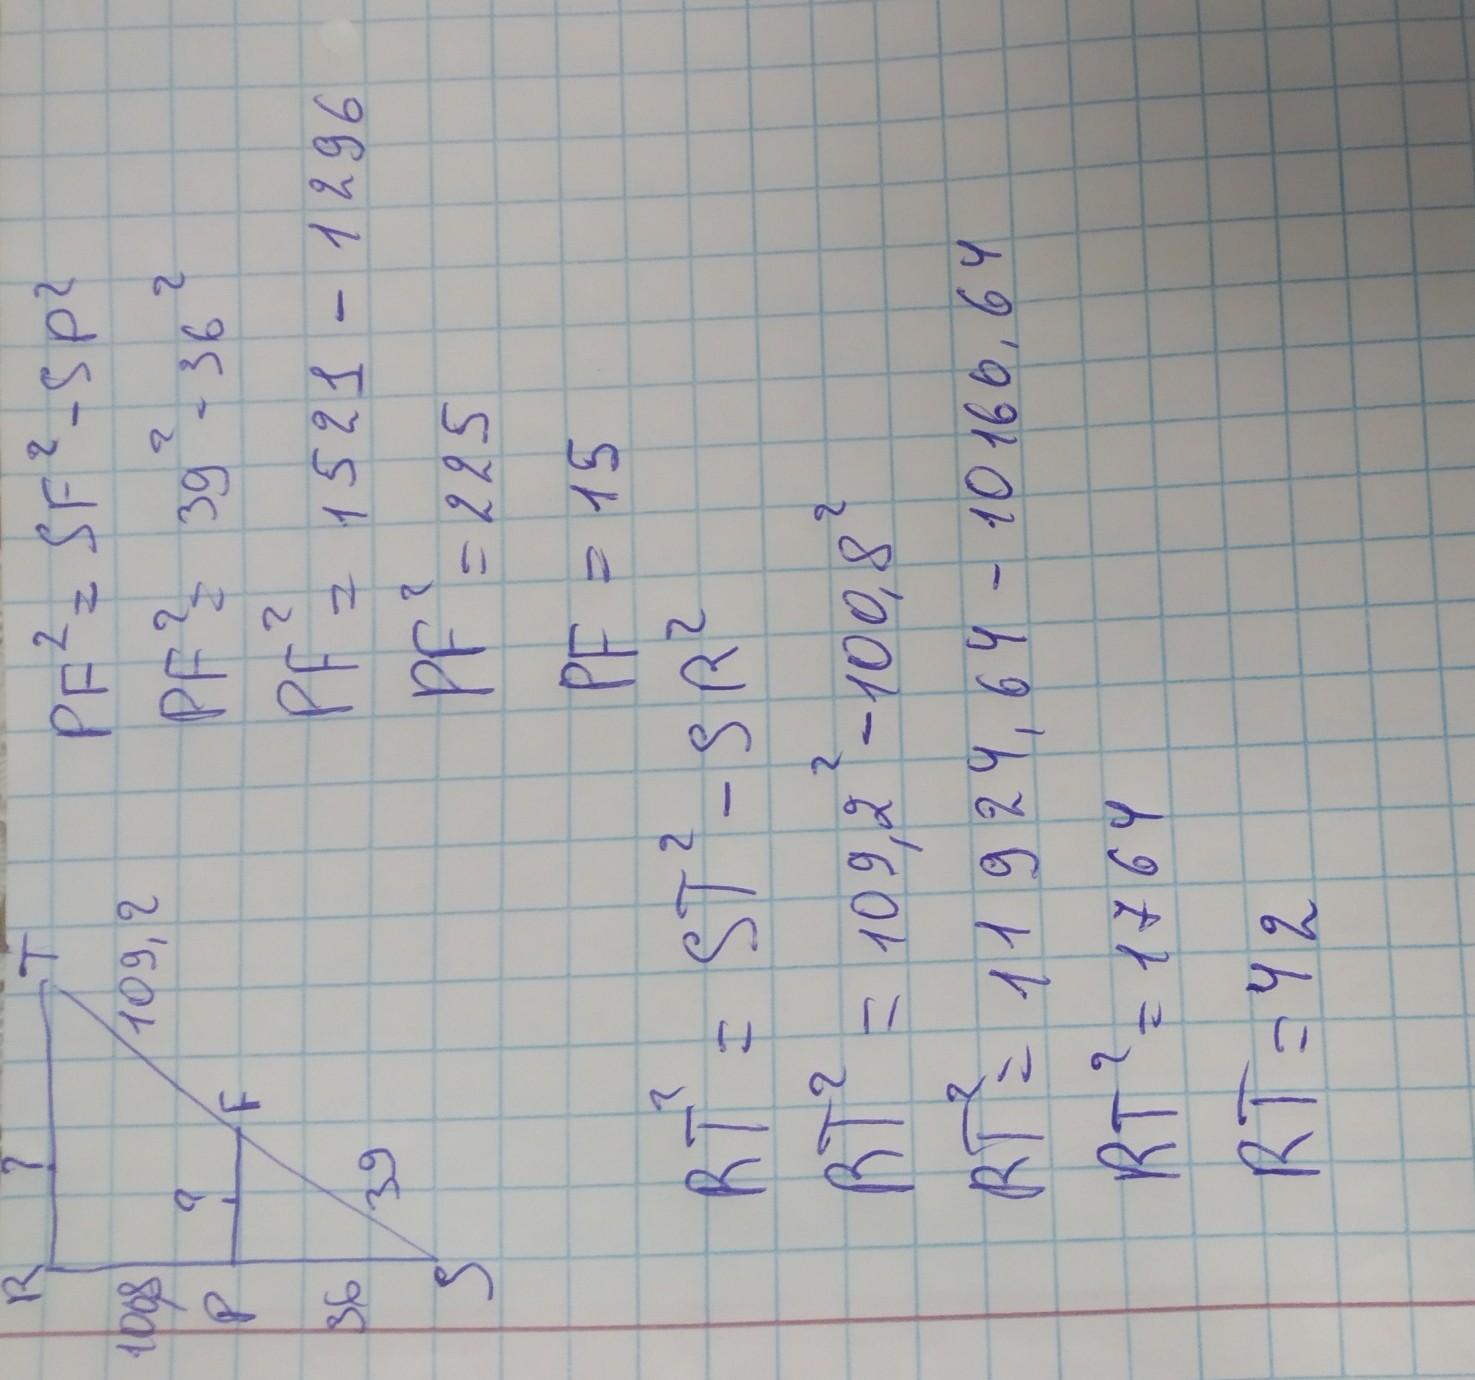 R ? T
100,8
109,2
P ? F
36
39
S
PF² = SF² - SP²
PF² = 39² - 36²
PF² = 1521 - 1296
PF² = 225
PF = 15
RT² = ST² - SR²
RT² = 109,2² - 100,8²
RT² = 11924,64 - 10160,64
RT² = 1764
RT = 42